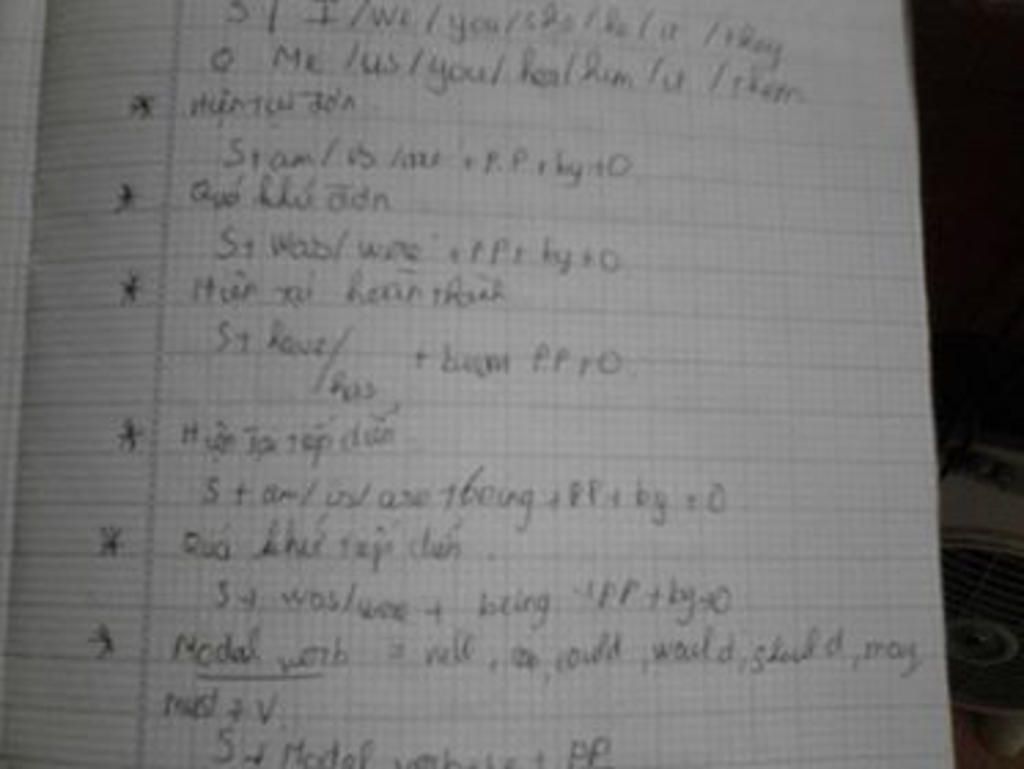 S | I / we / you / she / he / it / they
O Me / us / you / her / him / it / them
* Hiện tại đơn
S + am / is / are + P.P + by + O
* Quá khứ đơn
S + was / were + P.P + by + O
* Hiện tại hoàn thành
S + have / has + been P.P + O
* Hiện tại tiếp diễn
S + am / is / are + being + P.P + by + O
* Quá khứ tiếp diễn.
S + was / were + being + P.P + by + O
* Modal verb = will, could, would, should, may,
must + V.
S + Modal verb + be + PP